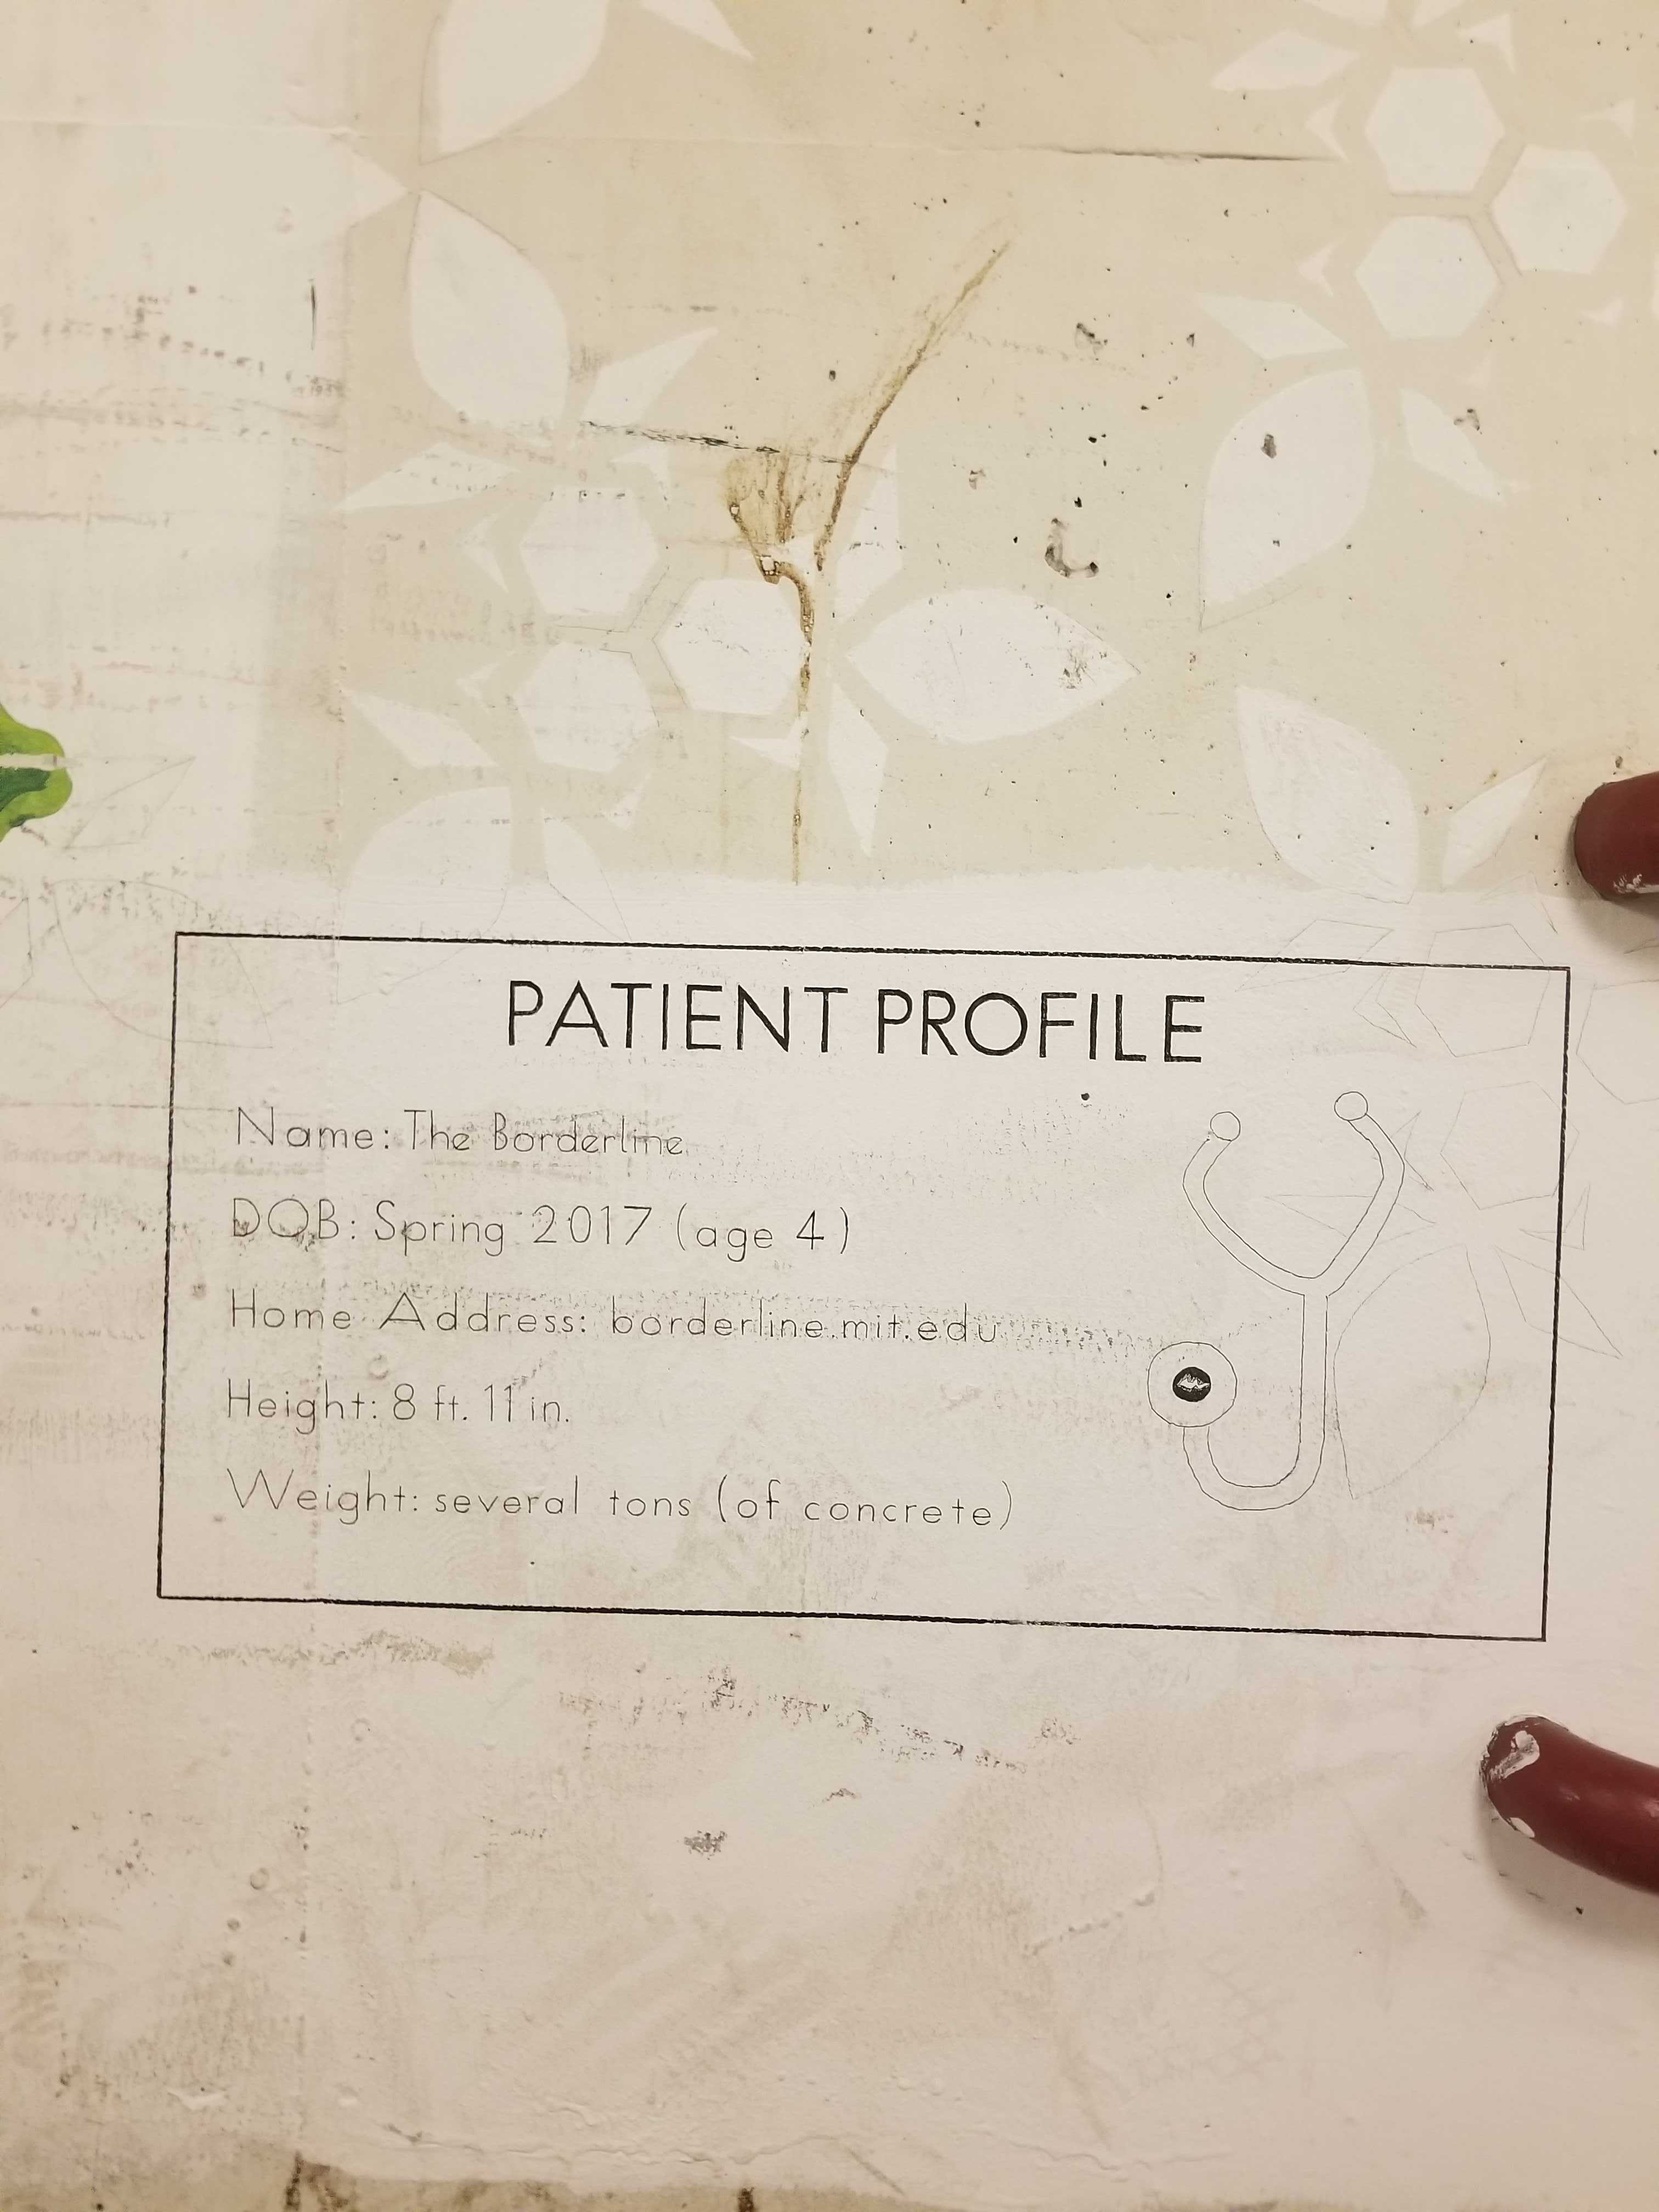 PATIENT PROFILE
Name: The Borderline
DOB: Spring 2017 (age 4)
Home Address: borderline.mit.edu
Height: 8 ft. 11 in.
Weight: several tons (of concrete)